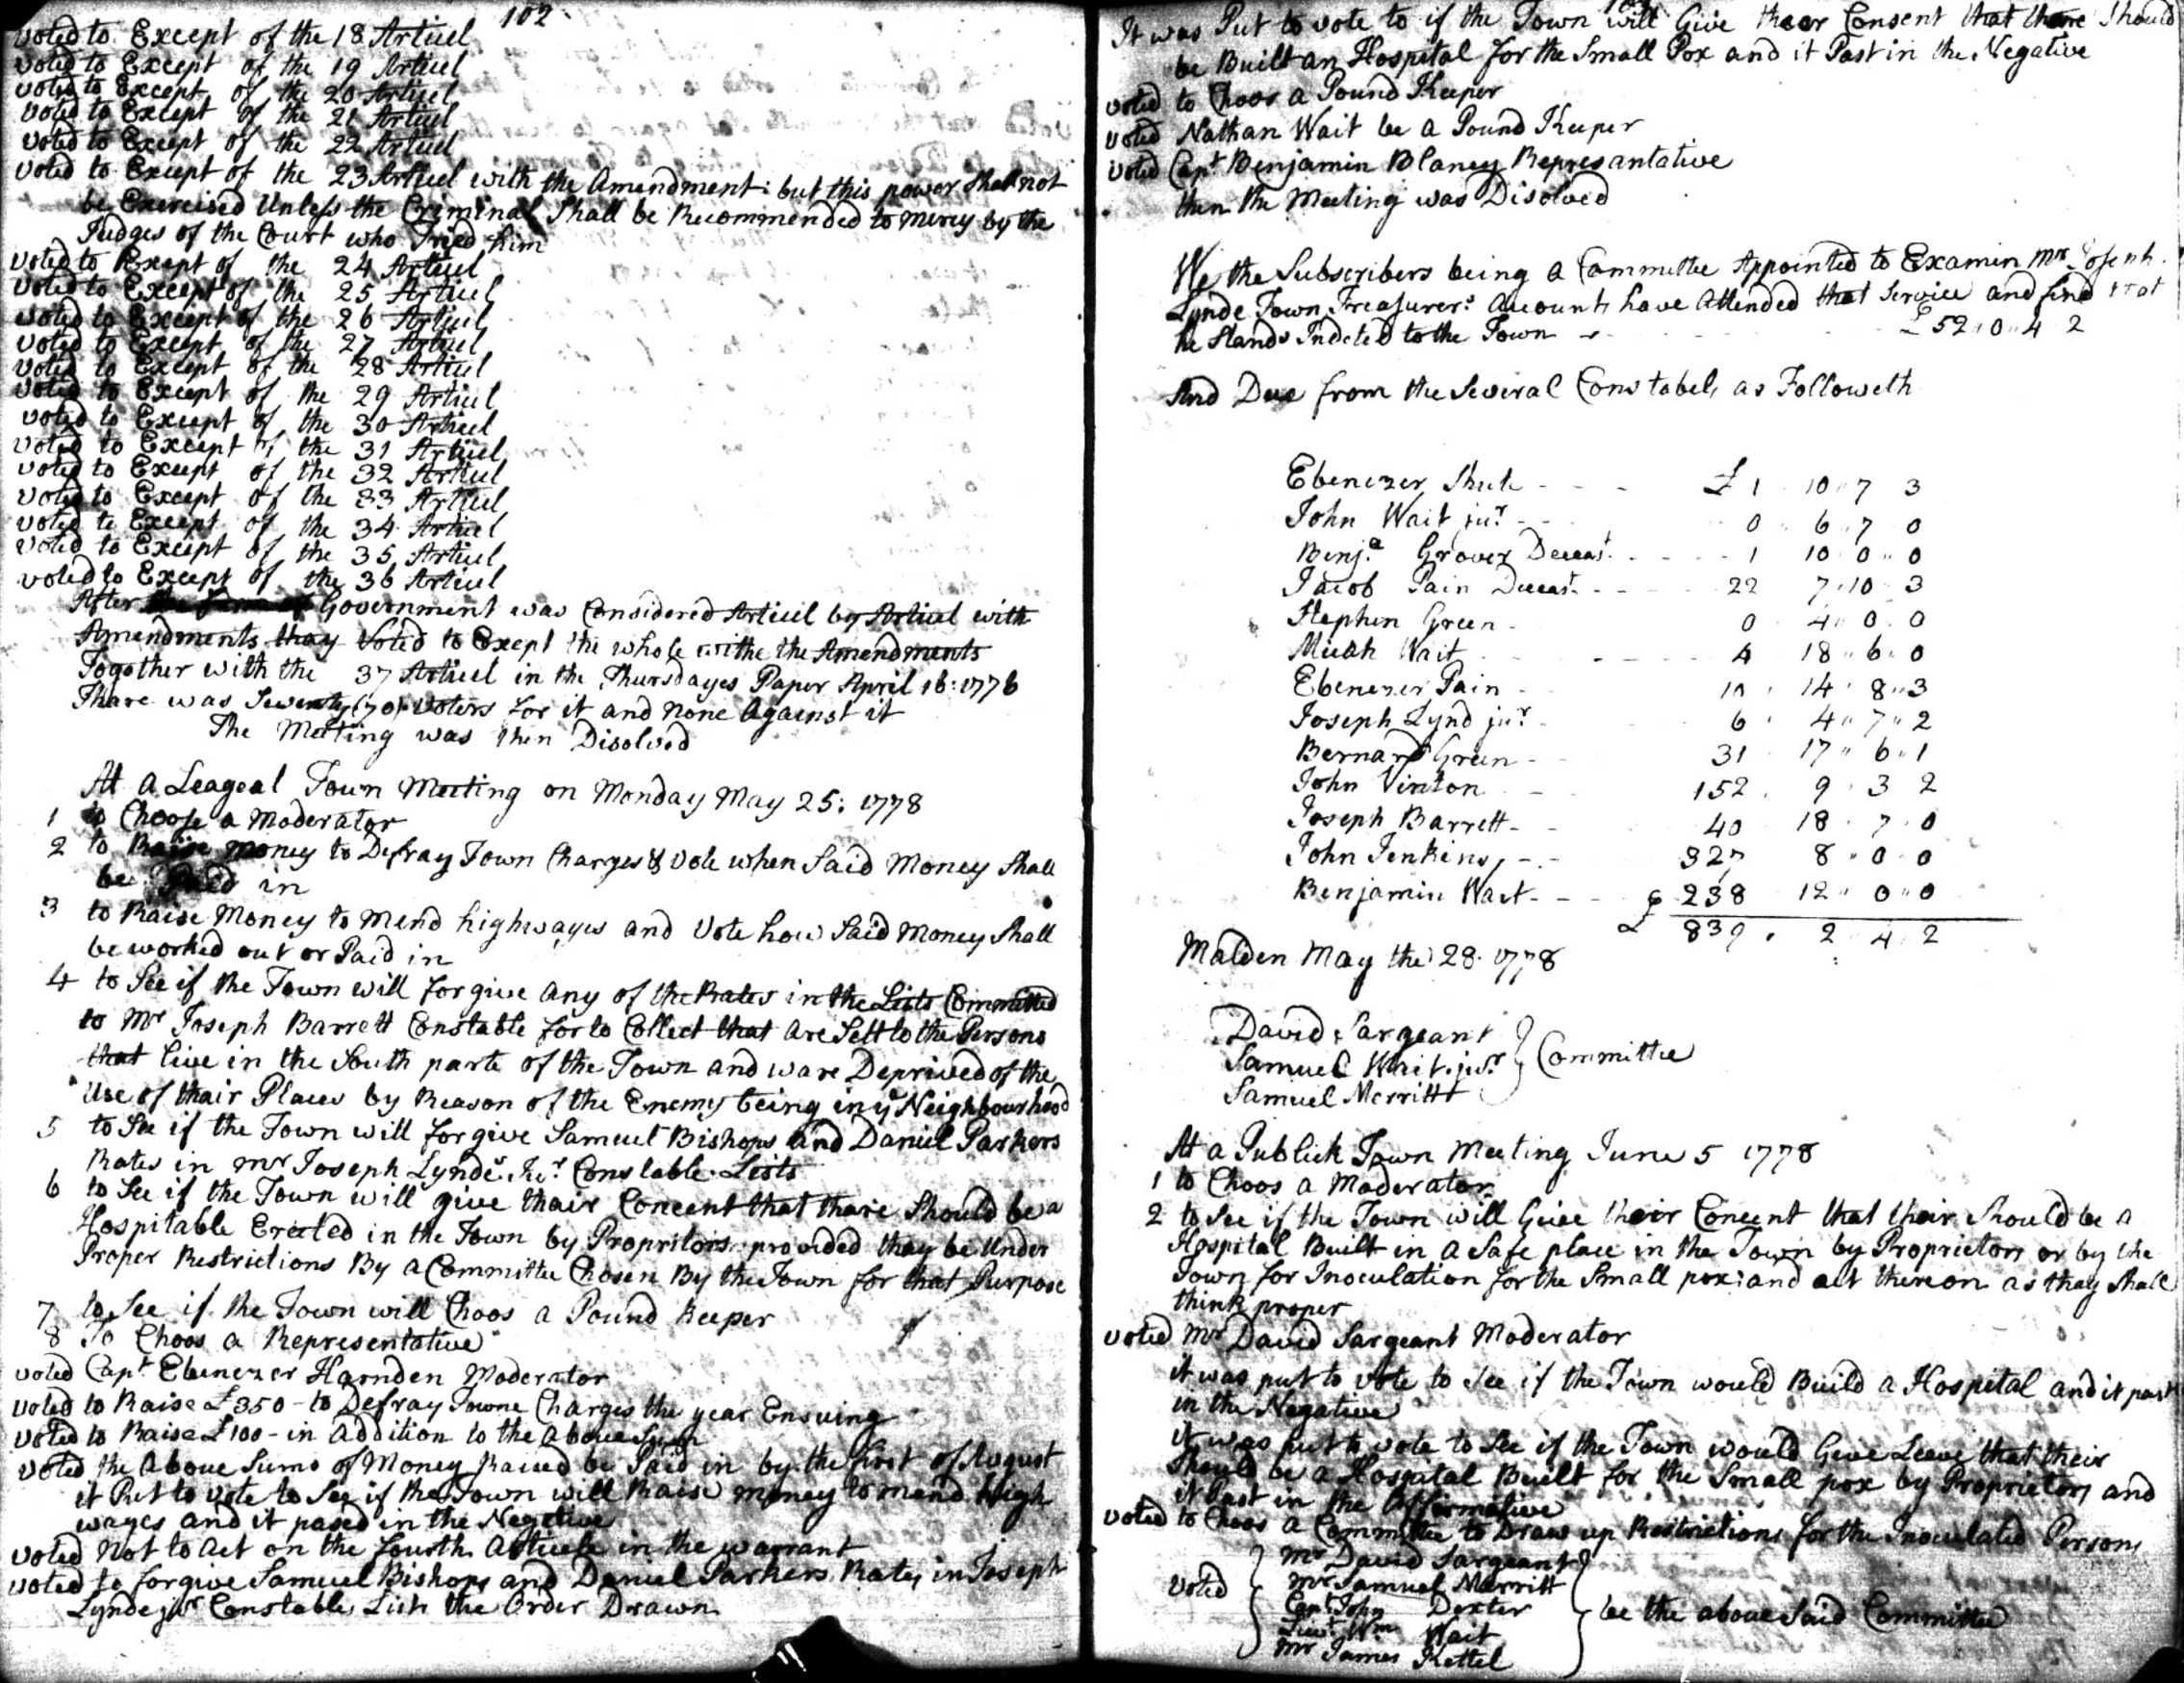 102
voted to Except of the 18 Artiul
voted to Except of the 19 Artiul
voted to Except of the 20 Artiul
voted to Except of the 21 Artiul
voted to Except of the 22 Artiul
voted to Except of the 23 Artiul with the Amendment: but this power Shall not
be Exercised Unless the Creminal Shall be Recommended to mercy by the
Judges of the Court who Tried him
voted to Except of the 24 Artiul
voted to Except of the 25 Artiul
voted to Except of the 26 Artiul
voted to Except of the 27 Artiul
voted to Except of the 28 Artiul
voted to Except of the 29 Artiul
voted to Except of the 30 Artiul
voted to Except of the 31 Artiul
voted to Except of the 32 Artiul
voted to Except of the 33 Artiul
voted to Except of the 34 Artiul
voted to Except of the 35 Artiul
voted to Except of the 36 Artiul
After Government was Considered Artiul by Artiul with
Amendments thay Voted to Exept the whole withe the Amendments
Together with the 37 Artiul in the Thursdayes Paper April 16: 1778
Thare was Seventy (70) voters for it and none Against it
The Meeting was then Disolved
At a Leageal Town Meeting on Monday May 25: 1778
1 to Choose a Moderator
2 to Raise money to Defray Town Charges & vote when Said Money Shall
be Paid in
3 to Raise Money to mend highwayes and Vote how Said money Shall
be worked out or Paid in
4 to See if the Town will forgive any of the Rates in the Lists Committed
to Mr Joseph Barrett Constable for to Collect that are Sett to the Persons
that live in the South parte of the Town and ware Deprived of the
Use of thair Places by Reason of the Enemy being in ye Neighbourhood
5 to See if the Town will forgive Samuel Bishops and Daniel Parkers
Rates in mr Joseph Lynds Jur Constable Lists
6 to See if the Town will give thair Concent that thare Should be a
Hospitable Erected in the Town by Propritors provided thay be Under
Proper Restrictions By a Committee Chosen By the Town for that Purpose
7 to See if the Town will Choos a Pound Keeper
8 To Choos a Representative
voted Capt Ebenezer Harnden Moderator
voted to Raise £350 - to Defray Towne Charges the year Ensuing
voted to Raise £100 - in addition to the above Sum
voted the above Sums of Money Raised be Paid in by the first of August
it Put to vote to See if the Town will Raise money to mend high
wayes and it pased in the Negetive
voted Not to Act on the fourth Articele in the warrant
voted to forgive Samuel Bishops and Daniel Parkers Rates in Joseph
Lynde jur Constables List the Order Drawn
It was Put to vote to if the Town will Give thear Consent that thare Should
be Built an Hospital for the Small Pox and it Past in the Negative
voted to Choos a Pound Keeper
voted Nathan Wait be a Pound Keeper
voted Capt Benjamin Blaney Represantative
then the Meeting was Disolved
We the Subscribers being a Committee Appointed to Examin mr Joseph
Lynde Town Treasurers Accounts have Attended that Service and find that
he Stands Indeted to the Town £52 " 0 " 4 2
And Due from the Several Constabels as Followeth
Ebenezer Shute - - - £ 1 10 " 7 3
John Wait jur - - 0 " 6 " 7 0
Benja Grover Deceast. - - - 1 10 0 " 0
Jacob Pain Deceast. - - - 22 7 " 10 " 3
Stephen Green - 0 4 " 0 . 0
Micah Wait - - - 4 18 " 6 " 0
Ebenezer Pain - 10 . 14 " 8 " 3
Joseph Lynd jur - 6 . 4 " 7 " 2
Bernard Green - - 31 17 " 6 " 1
John Vinton - - 152 . 9 . 3 2
Joseph Barrett - - 40 18 . 7 . 0
John Jenkins - - 327 8 . 0 . 0
Benjamin Wait - - - 238 12 " 0 " 0
£ 839 . 2 . 4 . 2
Malden May the 28. 1778
David Sargeant
Samuel Wait jur } Committee
Samuel Merritt
At a Publick Town Meeting June 5 1778
1 to Choos a Moderator
2 to See if the Town will Give their Concent that their Should be a
Hospital Built in a Safe place in the Town by Proprietors or by the
Town for Inoculation for the Small pox: and act thereon as thay Shall
think proper
voted Mr David Sargeant Moderator
it was put to vote to See if the Town would Build a Hospital and it past
in the Negative
it was put to vote to See if the Town would Give Leave that their
Should be a Hospital Built for the Small pox by Proprietors and
it Past in the Affirmative
voted to Choos a Committee to Draw up Restrictions for the Inoculated Persons
Mr David Sargeant
Mr Samuel Merritt
voted Capt John Dexter be the above Said Committee
Lieut Wm Wait
Mr James Kettel